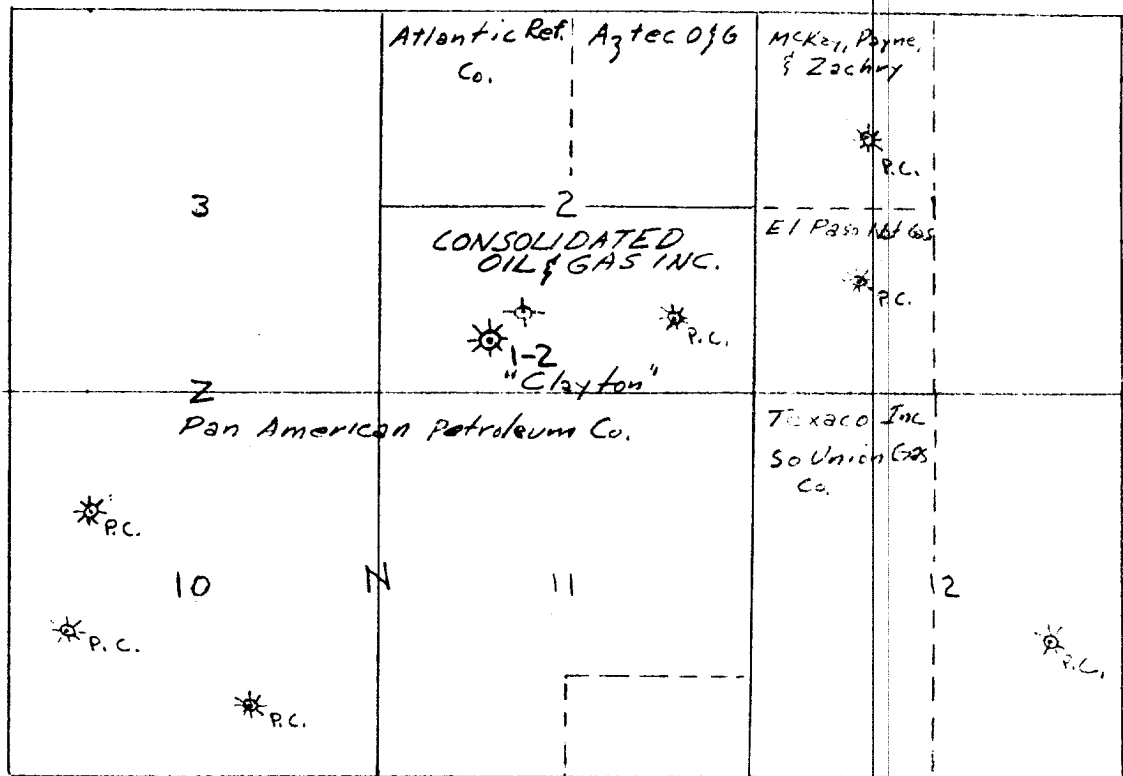 Atlantic Ref.
Co.
Aztec O&G
McKay, Payne,
& Zachry
P.C.
3
2
El Paso Nat Gas
CONSOLIDATED
OIL & GAS INC.
P.C.
P.C.
1-2
"Clayton"
Z
Pan American Petroleum Co.
Texaco Inc
So Union Gas
Co.
P.C.
10
N
11
12
P.C.
P.C.
P.C.